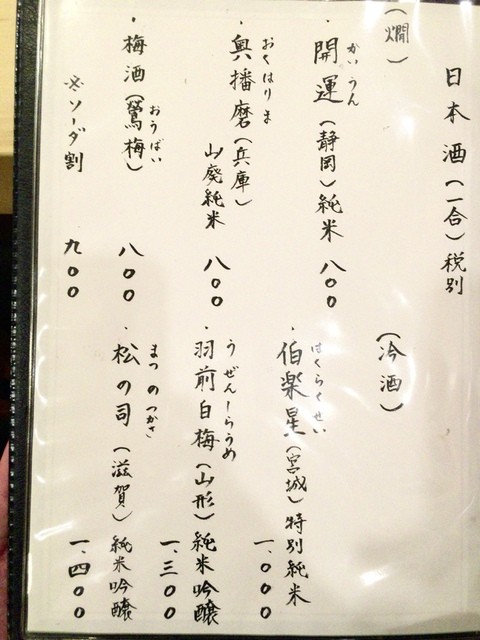 日本酒(一合)税別
(燗)
かいうん
・開運(静岡)純米 八〇〇
おくはりま
・奥播磨(兵庫)
山廃純米 八〇〇
おうばい
・梅酒(鶯梅) 八〇〇
※ソーダ割 九〇〇
(冷酒)
はくらくせい
・伯楽星(宮城)特別純米
一、〇〇〇
うぜんしらうめ
・羽前白梅(山形)純米吟醸
一、三〇〇
まつのつかさ
・松の司(滋賀)純米吟醸
一、四〇〇